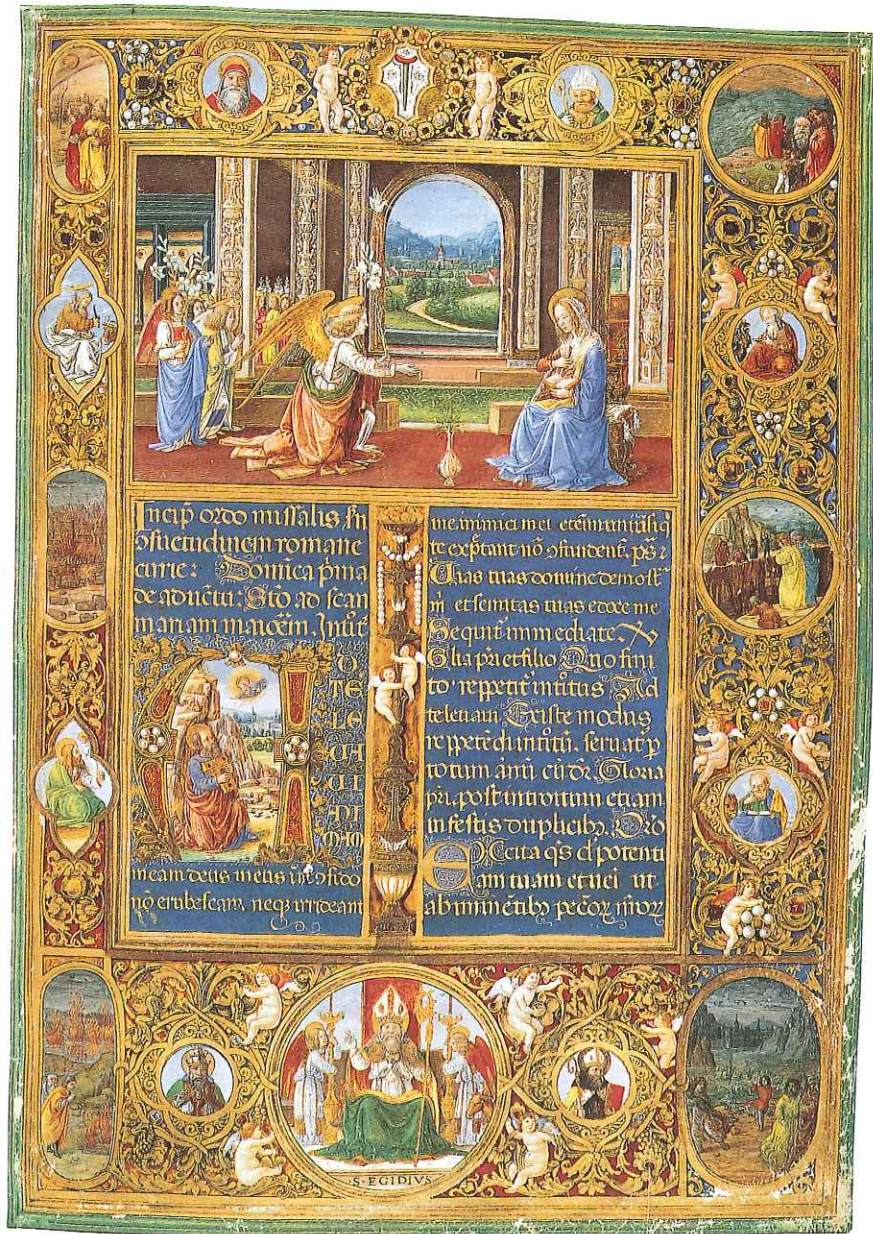 Incip̄ ordo missalis s̄m
ꝯsuetudinem romane
curie: Dom̄ica p̄ma
de aduētu: Stō ad scam
mariam maioēm. Introit̄
A D
TE
LE
UA
UI
MAM
meam deus meus ī te ꝯfido
nō erubescam, neqꝫ irrideant
me inimici mei. etenim
te exp̄tant nō ꝯfundent̄. ps̄ ꝛ
Uias tuas domine demōst̄
m̄ et semitas tuas edoce me
Sequit̄ immediate. V
Glia pr̄i et filio Quo fini
to reppetit̄ introitus Ad
te leuaui. Et iste modus
reppetēdi introitū. seruat̄ p
totum ānū cū dr̄. Gloria
pr̄i. post introitum etiam
in festis duplicibꝫ. Oro
Excita qs̄ potenti
am tuam et uei ut
ab iminētibꝫ pecōꝛ nr̄oꝛ
·S·EGIDIVS·